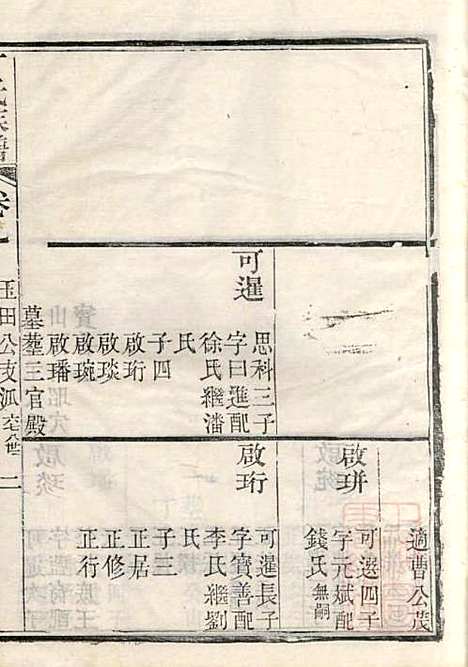 適曹公茂
啟琪
可選四子
字元斌配
錢氏無嗣
可暹
思科三子
字曰進配
徐氏繼潘
氏
子四
啟珩
啟琰
啟琬
啟璠
墓塟三官殿
啟珩
可暹長子
字寶善配
李氏繼劉
氏
子三
正居
正修
正行
氏族譜
卷
玉田公支派
二